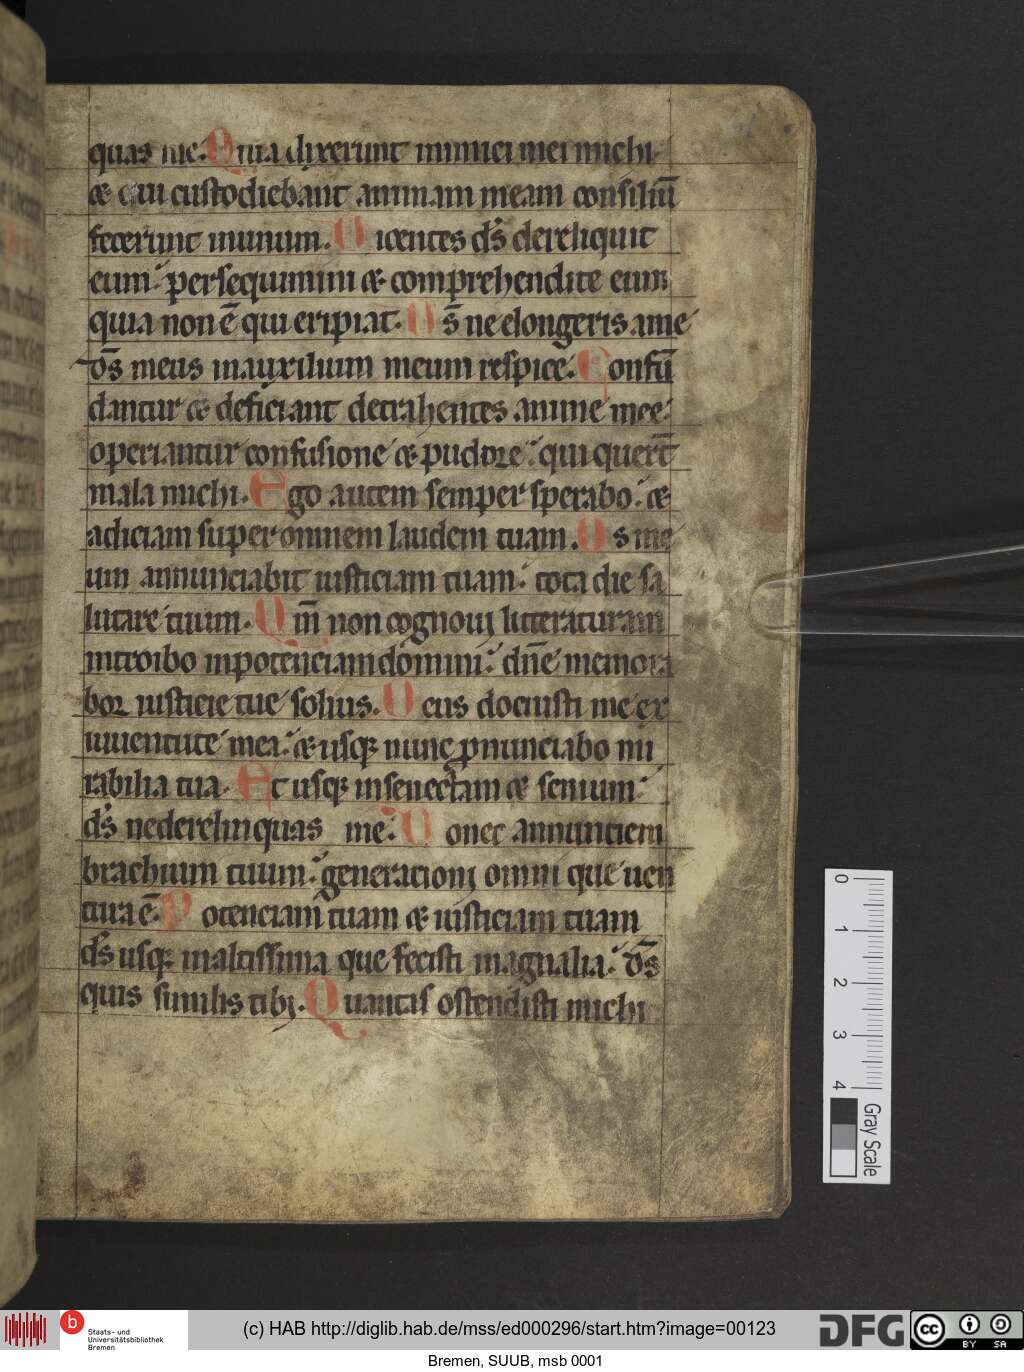 quas me. Quia dixerunt inimici mei michi
⁊ qui custodiebant animam meam consiliū
fecerunt inunum. Dicentes ds̄ dereliquit
eum: persequimini ⁊ comprehendite eum
quia non ē qui eripiat. Ds̄ ne elongeris ame
ds̄ meus inauxilium meum respice. Confū
dantur ⁊ deficiant detrahentes anime mee:
operiantur confusione ⁊ pudore: qui querūt
mala michi. Ego autem semper sperabo: ⁊
adiciam super omnem laudem tuam. Os me
um annunciabit iusticiam tuam: tota die sa
lutare tuum. Qm̄ non cognouj litteraturam
introibo inpotenciam domini: dn̄e memora
bor iusticie tue solius. Deus docuisti me ex
iuuentute mea: ⁊ usqꝫ nunc ꝓnunciabo mi
rabilia tua. Et usqꝫ insenectam ⁊ senium:
ds̄ nederelinquas me. Donec annunciem
brachium tuum: generacionj omni que uen
tura ē. Potenciam tuam ⁊ iusticiam tuam
ds̄ usqꝫ inaltissima que fecisti magnalia: ds̄
quis similis tibj. Quantas ostendisti michi
0 1 2 3 4
Gray Scale
b
Staats- und
Universitätsbibliothek
Bremen
(c) HAB http://diglib.hab.de/mss/ed000296/start.htm?image=00123
DFG
cc BY SA
Bremen, SUUB, msb 0001